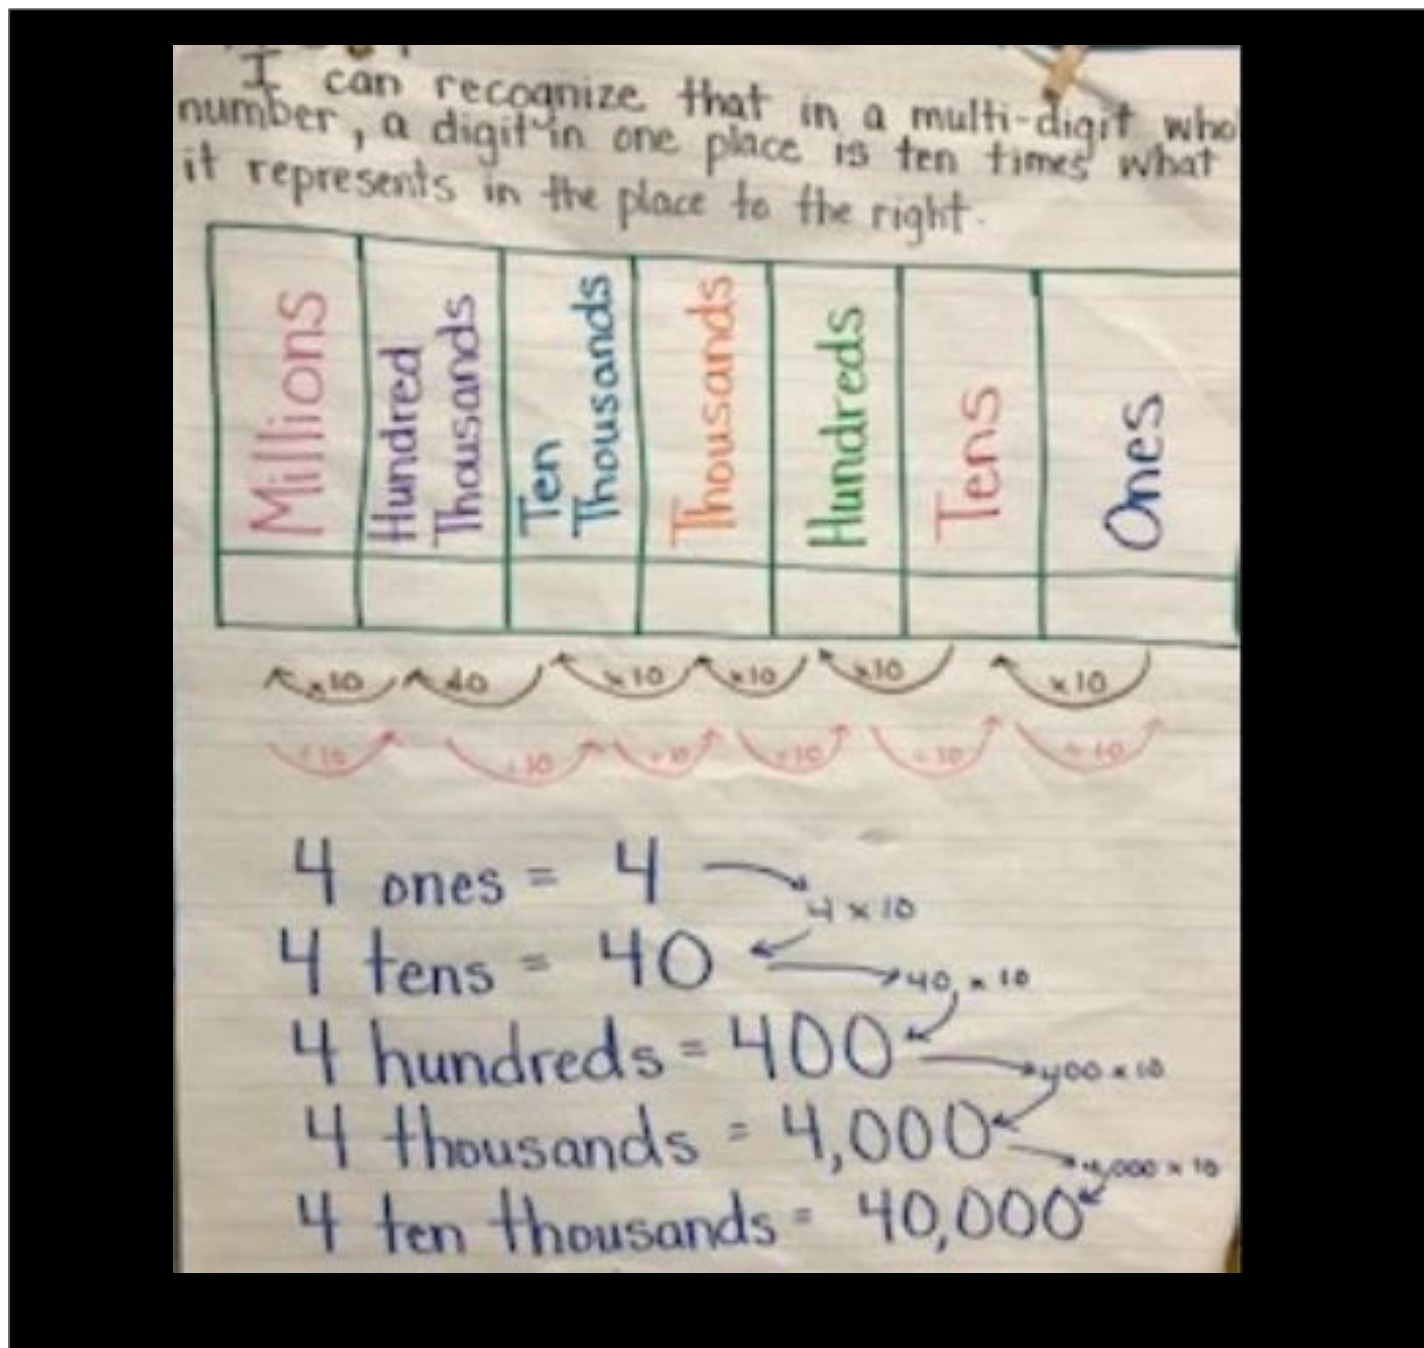 I can recognize that in a multi-digit who
number, a digit in one place is ten times what
it represents in the place to the right.
Millions
Hundred
Thousands
Ten
Thousands
Thousands
Hundreds
Tens
Ones
×10 ×10 ×10 ×10 ×10 ×10
÷10 ÷10 ÷10 ÷10 ÷10 ÷10
4 ones = 4
4 × 10
4 tens = 40
40 × 10
4 hundreds = 400
400 × 10
4 thousands = 4,000
4,000 × 10
4 ten thousands = 40,000